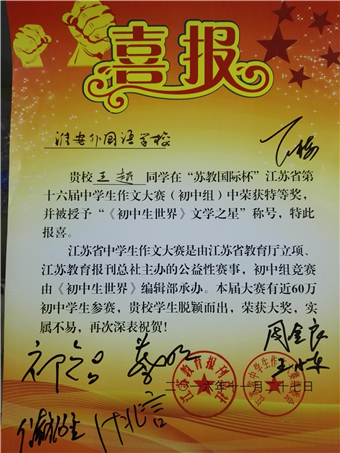 喜报
淮安外国语学校
贵校 王逝 同学在“苏教国际杯”江苏省第
十六届中学生作文大赛（初中组）中荣获特等奖，
并被授予“《初中生世界》文学之星”称号，特此
报喜。
江苏省中学生作文大赛是由江苏省教育厅立项、
江苏教育报刊总社主办的公益性赛事，初中组竞赛
由《初中生世界》编辑部承办。本届大赛有近60万
初中学生参赛，贵校学生脱颖而出，荣获大奖，实
属不易，再次深表祝贺！
周金良
二〇一六年十一月二十七日